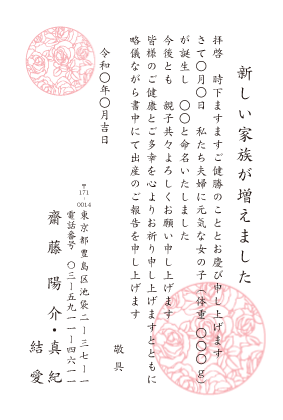 新しい家族が増えました
拝啓　時下ますますご健勝のこととお慶び申し上げます
さて〇月〇日　私たち夫婦に元気な女の子（体重 〇〇〇ｇ）
が誕生し　〇〇と命名いたしました
今後とも　親子共々よろしくお願い申し上げます
皆様のご健康とご多幸を心よりお祈り申し上げますとともに
略儀ながら書中にて出産のご報告を申し上げます
敬具
令和〇年〇月吉日
〒171-0014
東京都豊島区池袋２ー３７ー１
電話番号　〇３ー５９１１ー４６１１
齋藤　陽介・真紀
結愛